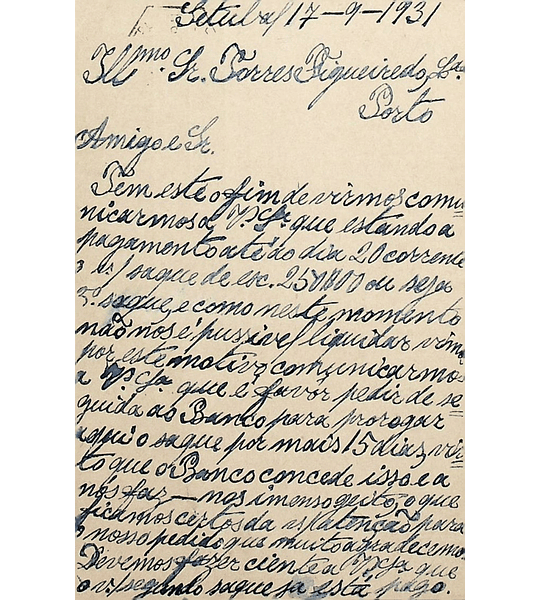 Setubal 17-9-1931
Illmo. Sr. Torres Figueiredo, Lda
Porto
Amigo e Sr.
Tem este o fim de virmos comu=
nicarmos a V. Sa. que estando a
pagamento até ao dia 20 corrente
o v/ saque de esc. 250$00 ou seja
3º. saque, e como neste momento
não nos é pussivel liquidar vimos
por este motivo comunicarmos
a V. Sa. que é favor pedir de se=
guida ao Banco para prorogar
aqui o saque por mais 15 dias, vis=
to que o Banco concede isso e a
nós faz-nos imenso geito, o que
ficamos certos da v/ atenção para
o nosso pedido que muito agradecemos.
Devemos fazer ciente a V. Sa. que
o v/ segundo saque ja está pago.